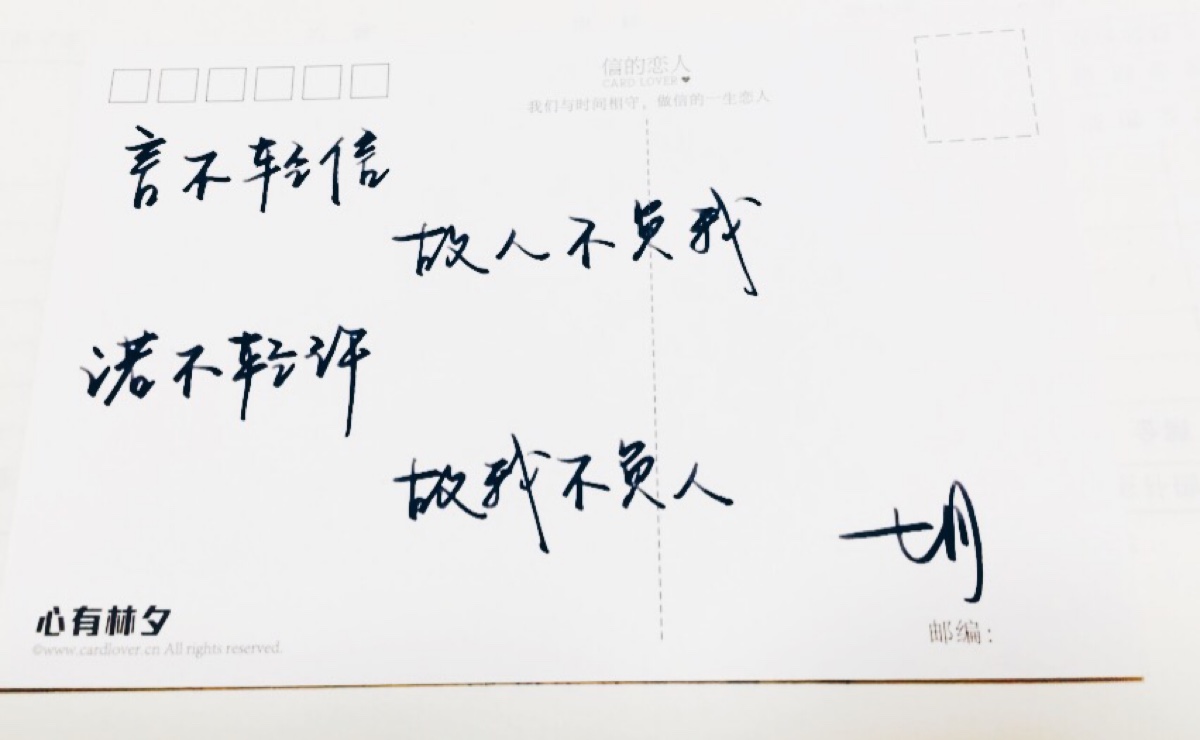 信的恋人
CARD LOVER
我们与时间相守，做信的一生恋人
言不轻信
故人不负我
诺不轻许
故我不负人
七月
心有林夕
©www.cardlover.cn All rights reserved.
邮编：